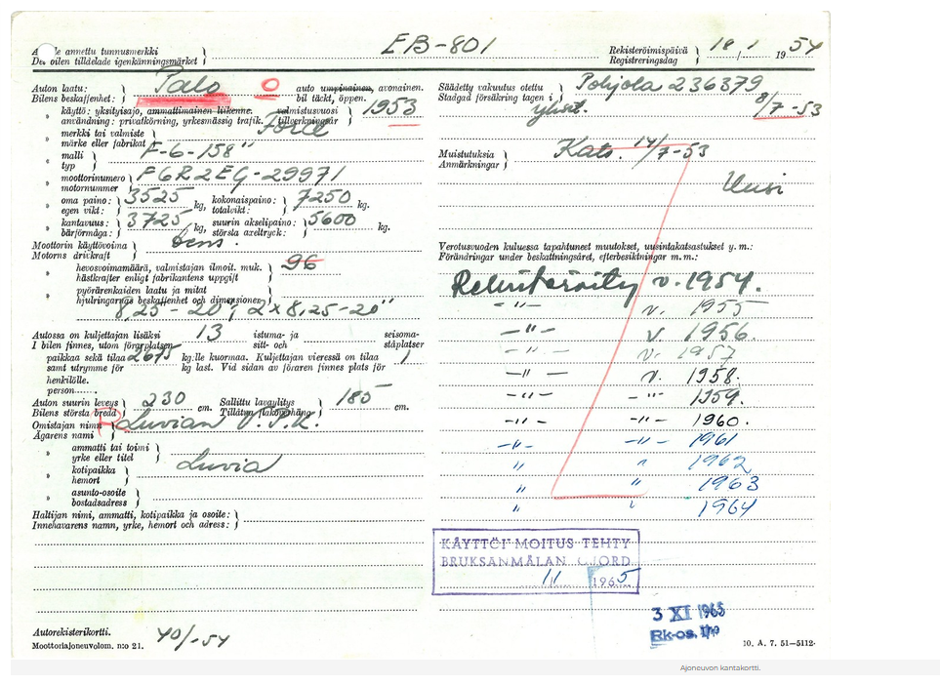 EB-801
le annettu tunnusmerkki
De oilen tilldelade igenkänningsmärket
Rekisteröimispäivä
Registreringsdag
18 / 1 1954
Auton laatu: Palo O auto umpinainen, avonainen.
Bilens beskaffenhet: bil täckt, öppen.
" käyttö: yksityisajo, ammattimainen liikenne. valmistusvuosi 1953
användning: privatkörning, yrkesmässig trafik. tillverkningsår
" merkki tai valmiste Ford
märke eller fabrikat
" malli F-6-158"
typ
" moottorinumero F6R2EG-29971
motornummer
" oma paino: 3525 kg, kokonaispaino: 7250 kg.
egen vikt: totalvikt:
" kantavuus: 3725 kg, suurin akselipaino: 5600 kg.
bärförmåga: största axeltryck:
Moottorin käyttövoima bens.
Motorns drivkraft
" hevosvoimamäärä, valmistajan ilmoit. muk. 96
hästkrafter enligt fabrikantens uppgift
" pyöränrenkaiden laatu ja mitat
hjulringarnas beskaffenhet och dimensioner
8,25-20", 2x8,25-20"
Autossa on kuljettajan lisäksi 13 istuma- ja seisoma-
I bilen finnes, utom förarplatsen sitt- och ståplatser
paikkaa sekä tilaa 2675 kg:lle kuormaa. Kuljettajan vieressä on tilaa 1
samt utrymme för kg last. Vid sidan av föraren finnes plats för
henkilölle.
person.
Auton suurin leveys 230 cm. Sallittu lavaylitys 185 cm.
Bilens största bredd Tillåten flaköverhäng
Omistajan nimi Luvian V.P.K.
Ägarens nami
" ammatti tai toimi
yrke eller titel
" kotipaikka Luvia
hemort
" asunto-osoite
bostadsadress
Haltijan nimi, ammatti, kotipaikka ja osoite:
Innehavarens namn, yrke, hemort och adress:
Autorekisterikortti. 40/-54
Moottoriajoneuvolom. n:o 21.
Säädetty vakuutus otettu Pohjola 236379
Stadgad försäkring tagen i 8/7-53
Muistutuksia Kats. 14/7-53
Anmärkningar
Uusi
Verotusvuoden kuluessa tapahtuneet muutokset, uusintakatsastukset y. m.:
Förändringar under beskattningsåret, efterbesiktningar m. m.:
Rekisteröity v. 1954.
-"- v. 1955
-"- v. 1956.
-"- v. 1957
-"- v. 1958.
-"- -"- 1959.
-"- -"- 1960.
-"- -"- 1961
" " 1962
" " 1963
" " 1964
KÄYTTÖI MOITUS TEHTY
BRUKSANMÄLAN GJORD
1/1 1965
3 XI 1965
Rk-os.
10. A. 7. 51—5112
Ajoneuvon kantakortti.